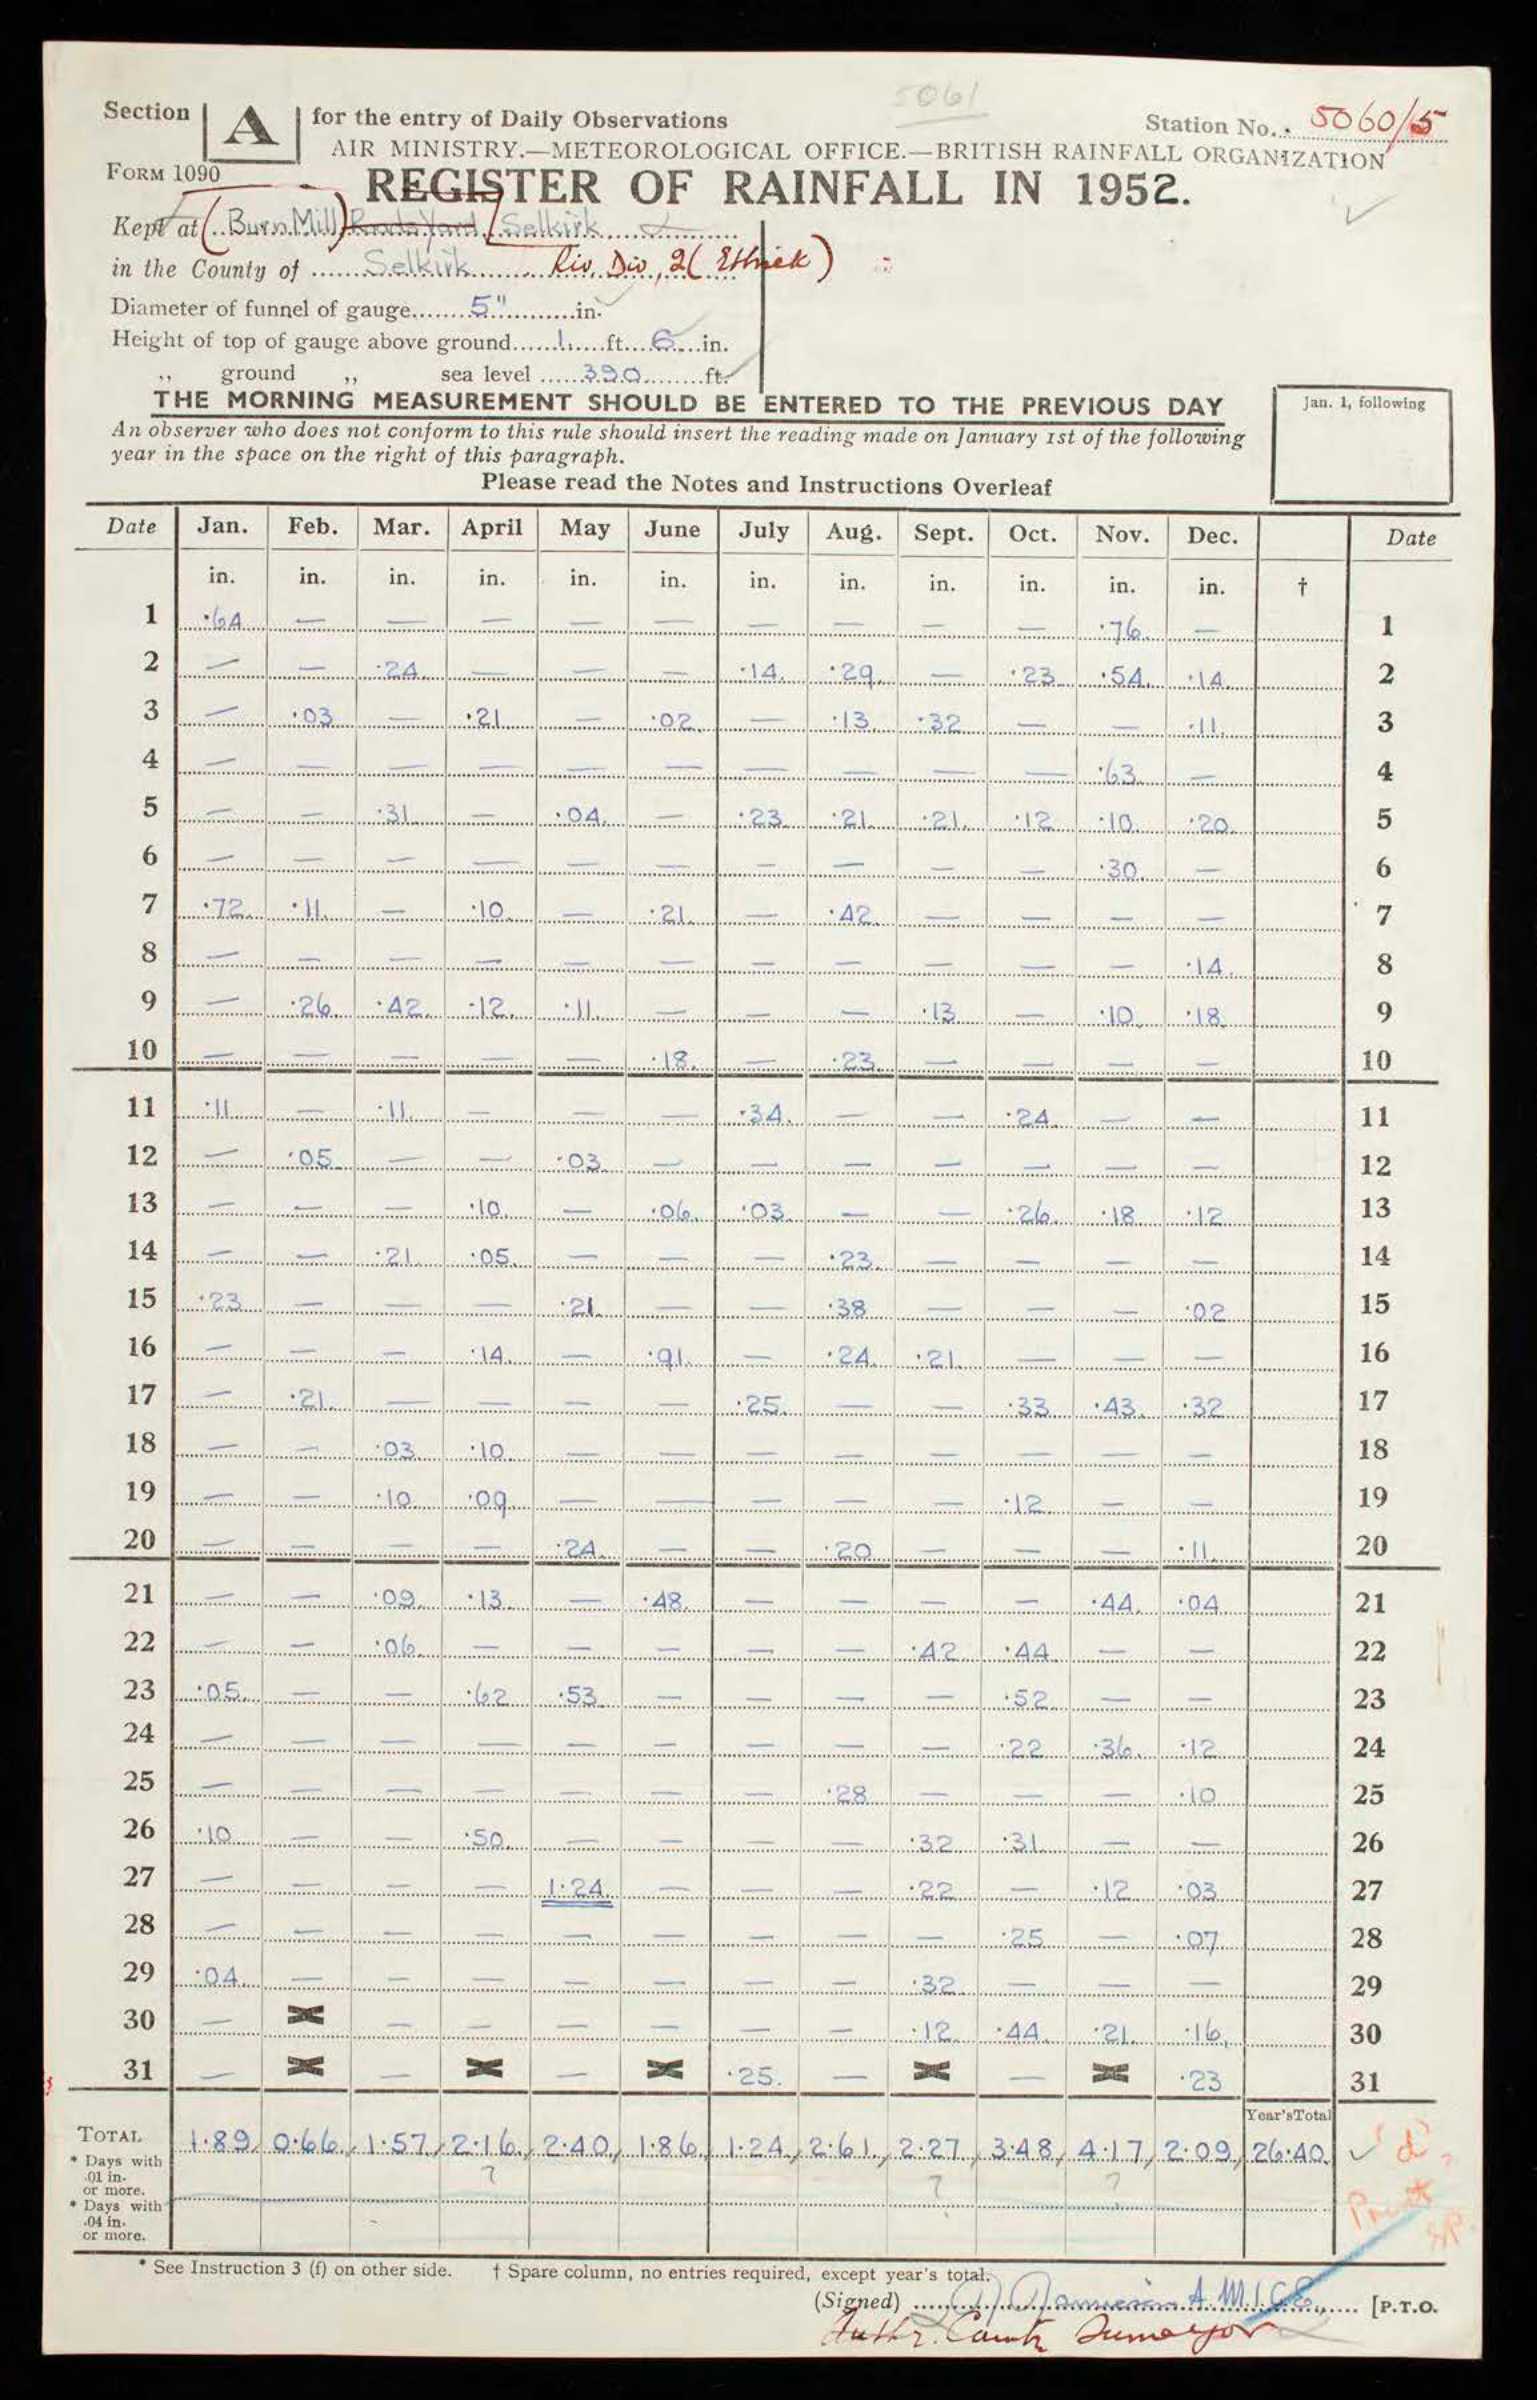 5061
Section A for the entry of Daily Observations
Station No. 5060/5
AIR MINISTRY.—METEOROLOGICAL OFFICE.—BRITISH RAINFALL ORGANIZATION
FORM 1090
REGISTER OF RAINFALL IN 1952.
Kept at (Burn Mill) Roads Yard, Selkirk
in the County of Selkirk Riv. Div, 2 (Ettrick)
Diameter of funnel of gauge 5" in.
Height of top of gauge above ground 1 ft 6 in.
,, ground ,, sea level 390 ft.
THE MORNING MEASUREMENT SHOULD BE ENTERED TO THE PREVIOUS DAY
Jan. 1, following
An observer who does not conform to this rule should insert the reading made on January 1st of the following
year in the space on the right of this paragraph.
Please read the Notes and Instructions Overleaf
Date Jan. Feb. Mar. April May June July Aug. Sept. Oct. Nov. Dec. Date
in. in. in. in. in. in. in. in. in. in. in. in. †
1 ·64 — — — — — — — — — ·76 — 1
2 — — ·24 — — — ·14 ·29 — ·23 ·54 ·14 2
3 — ·03 — ·21 — ·02 — ·13 ·32 — — ·11 3
4 — — — — — — — — — — ·63 — 4
5 — — ·31 — ·04 — ·23 ·21 ·21 ·12 ·10 ·20 5
6 — — — — — — — — — — ·30 — 6
7 ·72 ·11 — ·10 — ·21 — ·42 — — — — 7
8 — — — — — — — — — — — ·14 8
9 — ·26 ·42 ·12 ·11 — — — ·13 — ·10 ·18 9
10 — — — — — ·18 — ·23 — — — — 10
11 ·11 — ·11 — — — ·34 — — ·24 — — 11
12 — ·05 — — ·03 — — — — — — — 12
13 — — — ·10 — ·06 ·03 — — ·26 ·18 ·12 13
14 — — ·21 ·05 — — — ·23 — — — — 14
15 ·23 — — — ·21 — — ·38 — — — ·02 15
16 — — — ·14 — ·91 — ·24 ·21 — — — 16
17 — ·21 — — — — ·25 — — ·33 ·43 ·32 17
18 — — ·03 ·10 — — — — — — — — 18
19 — — ·10 ·09 — — — — — ·12 — — 19
20 — — — — ·24 — — ·20 — — — ·11 20
21 — — ·09 ·13 — ·48 — — — — ·44 ·04 21
22 — — ·06 — — — — — ·42 ·44 — — 22
23 ·05 — — ·62 ·53 — — — — ·52 — — 23
24 — — — — — — — — — ·22 ·36 ·12 24
25 — — — — — — — ·28 — — — ·10 25
26 ·10 — — ·50 — — — — ·32 ·31 — — 26
27 — — — — 1·24 — — — ·22 — ·12 ·03 27
28 — — — — — — — — — ·25 — ·07 28
29 ·04 — — — — — — — ·32 — — — 29
30 — × — — — — — — ·12 ·44 ·21 ·16 30
31 — × — × — × ·25 — × — × ·23 31
Year's Total
TOTAL 1·89 0·66 1·57 2·16 2·40 1·86 1·24 2·61 2·27 3·48 4·17 2·09 26·40
? ? ?
* Days with
·01 in.
or more.
* Days with
·04 in.
or more.
* See Instruction 3 (f) on other side. † Spare column, no entries required, except year's total.
(Signed) A.M.I.C.E. [P.T.O.
Surveyor